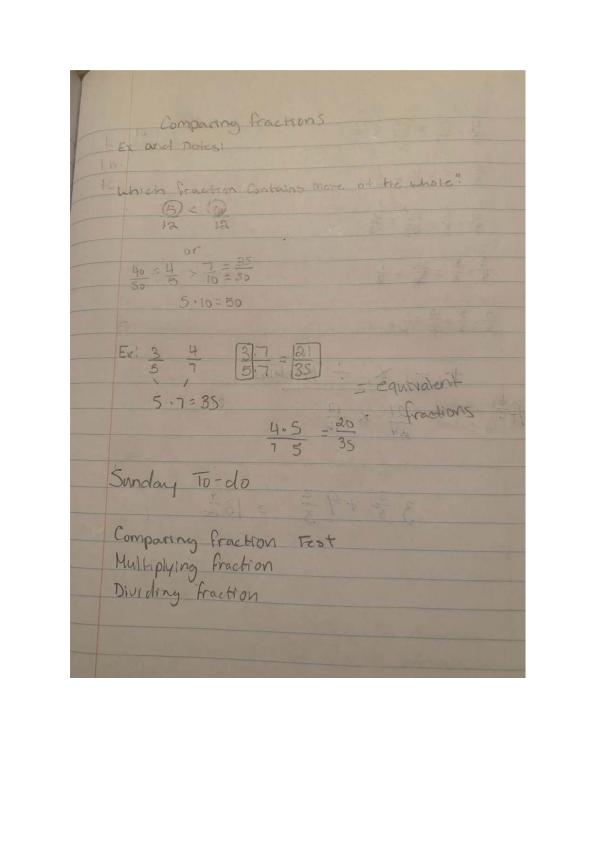 Comparing fractions
Ex and notes:
Which fraction contains more of the whole?
5/12 < /12
or
40/50 = 4/5 > 7/10 = 35/50
5 · 10 = 50
Ex: 3/5 4/7 3·7/5·7 = 21/35
= equivalent
5 · 7 = 35 fractions
4·5/7 5 = 20/35
Sunday To-do
Comparing fraction Test
Multiplying fraction
Dividing fraction